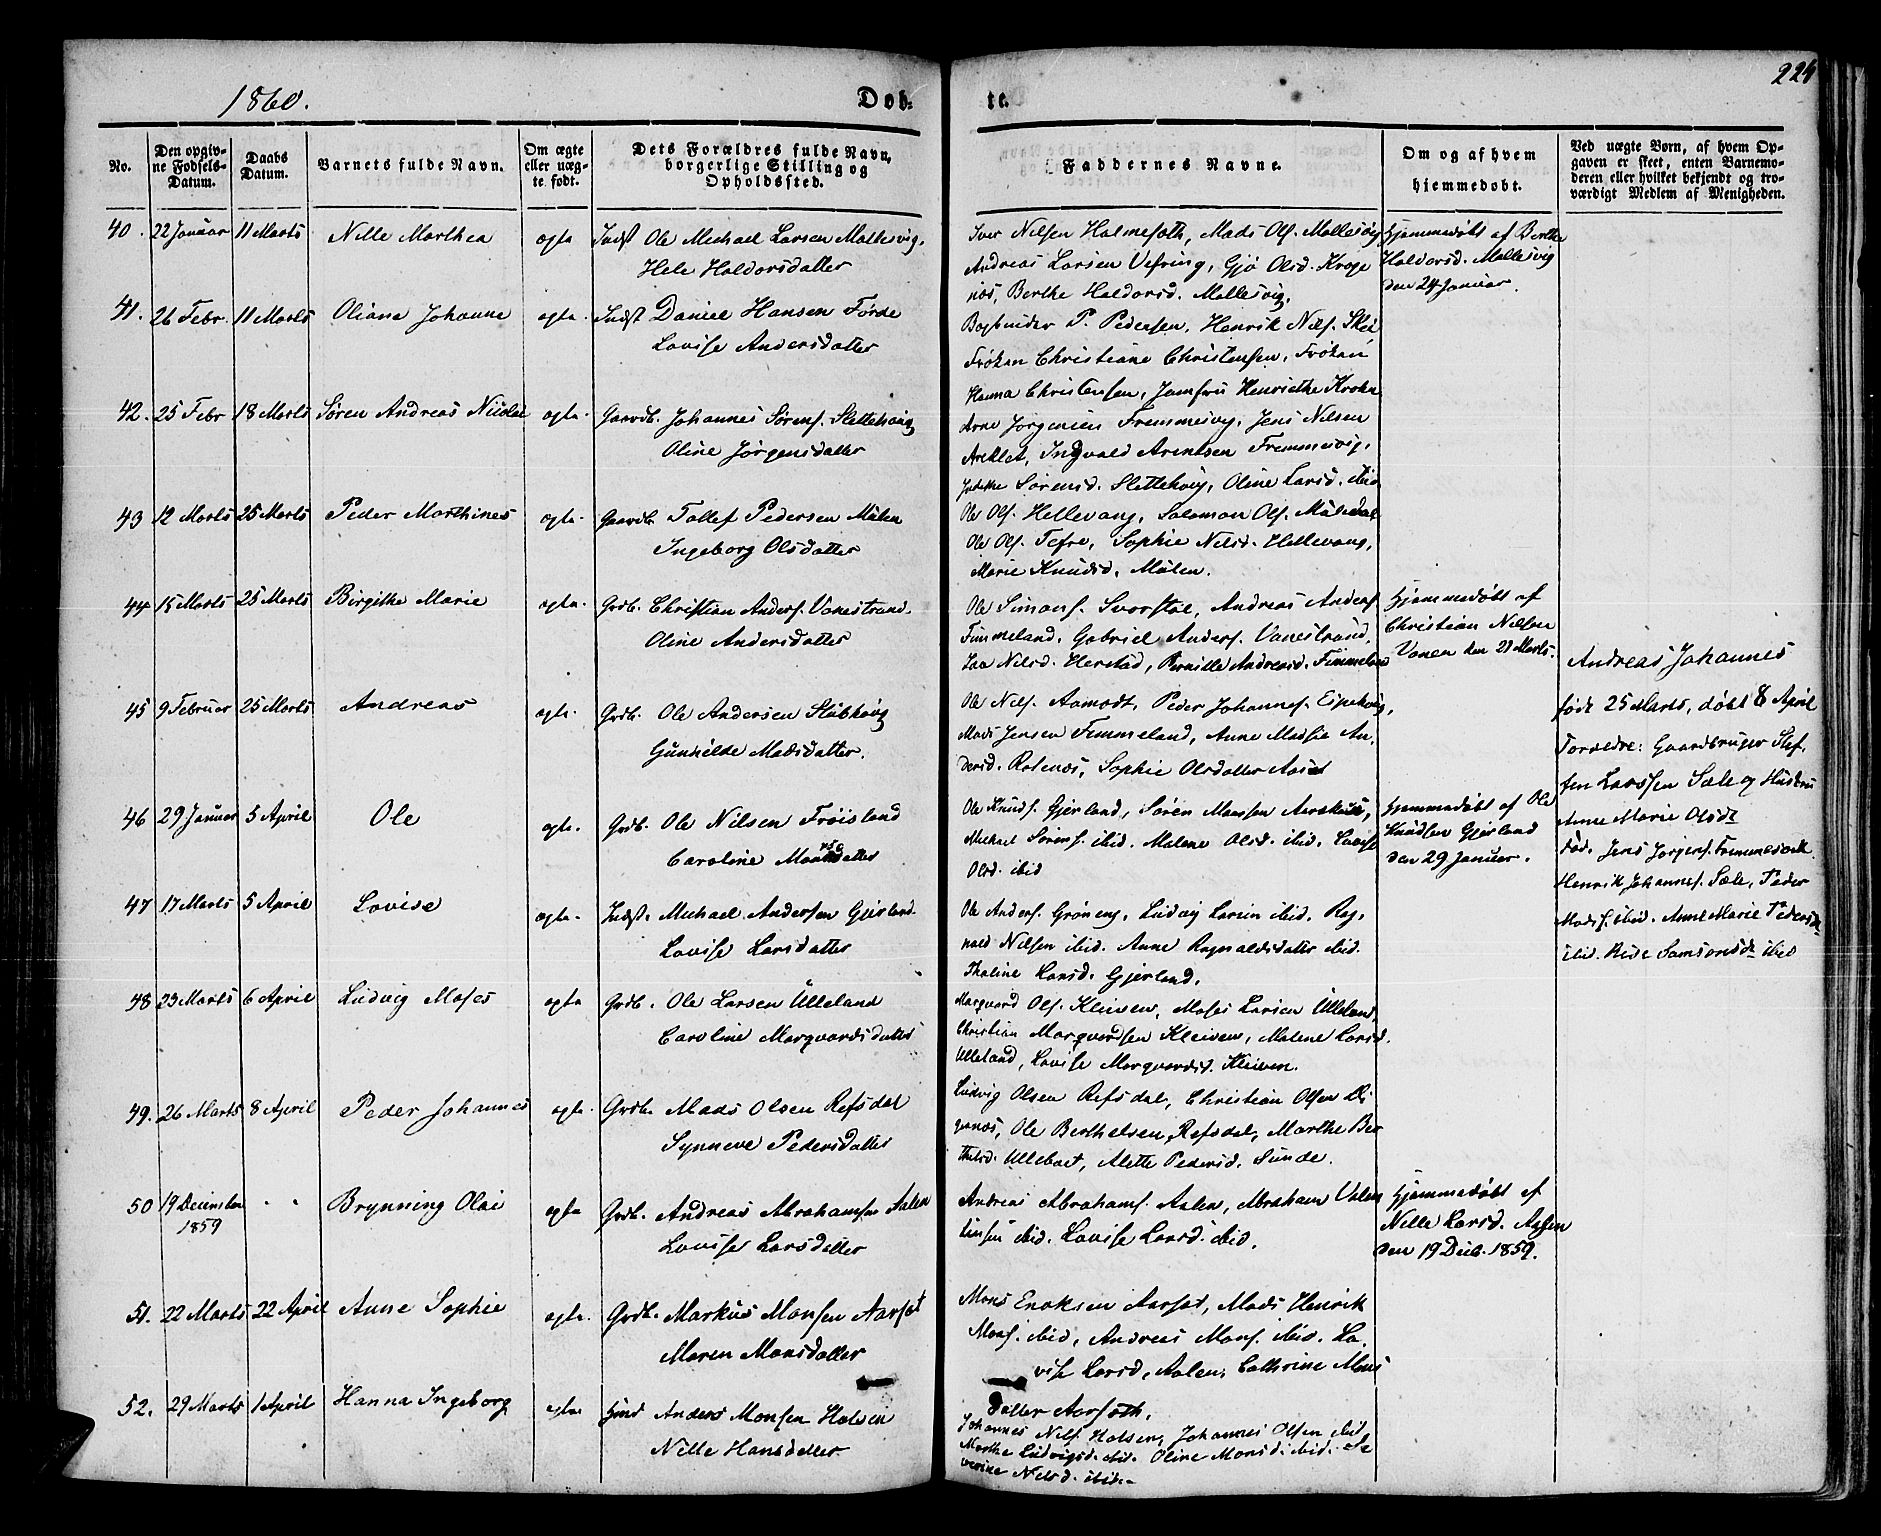 1860.
Døb-
te.
224
No.
Den opgiv-
ne Fødsels-
Datum.
Daabs
Datum.
Barnets fulde Navn.
Om ægte
eller uæg-
te født.
Dets Forældres fulde Navn,
borgerlige Stilling og
Opholdssted.
Faddernes Navne.
Om og af hvem
hjemmedøbt.
Ved uægte Børn, af hvem Op-
gaven er skeet, enten Barnemo-
deren eller hvilket bekjendt og tro-
værdigt Medlem af Menigheden.
40. 22 Januar 11 Marts Nille Marthea ægte Indst Ole Michael Larsen Mallesvig,
Hele Haldorsdatter
Iver Nilsen Holmefoth, Mads Ols. Mallesvig
Andreas Larsen Vefring, Gjø Olsd. Kroge
næs, Berthe Haldorsd. Mallesvig.
Hjemmedøbt af Berthe
Haldorsd. Mallesvig
den 24 Januar.
41. 26 Febr. 11 Marts Oliane Johanne ægte. Indst Daniel Hansen Førde
Lovise Andersdatter
Bogbinder P. Pedersen, Henrik Nils. Skei
Frøken Christiane Christensen, Frøken
Hanna Christensen, Jomfru Henriethe Krohn
42. 25 Febr 18 Marts Søren Andreas Nicolai ægte. Gaardb. Johannes Sørens. Slettehaug
Oline Jørgensdatter
Arne Jørgensen Fremmesvig, Jens Nilsen
Areklet, Ingvald Arentsen Fremmesvig,
Sørensd. Slettehoug, Oline Larsd. ibid
43 12 Marts 25 Marts Peder Marthines ægte. Gaardb. Tollef Pedersen Mülen
Ingeborg Olsdatter
Ole Ols. Hellevang, Salomon Ols. Müledal
Ole Ols. Tefre, Sophie Nilsd. Hellevang,
Marie Knudsd. Mülen.
44 15 Marts 25 Marts Birgithe Marie ægte. Grdb. Christian Anders. Vonestrand.
Oline Andersdatter
Ole Simons. Svorstøl, Andreas Anders.
Fimmeland, Gabriel Anders. Vonestrand,
Nilsd. Herstad, Pernille Andreasd. Fimmeland
Hjemmedøbt af
Christian Nilsen
Vonen den 21 Marts.
45 9 Februar 25 Marts Andreas ægte. Grdb. Ole Andersen Slübhoug
Gunhilde Madsdatter.
Ole Nils. Aamodt, Peder Johannes. Espehoug,
Mads Jensen Fimmeland, Anne Malfie An-
dersd. Rotenæs, Sophie Olsdatter Aaset
46 29 Januar 5 April Ole ægte. Grdb. Ole Nilsen Frøisland
Caroline Monsdatter
Ole Knuds. Gjerland, Søren Monsen Aarskoug,
Michael Sørens. ibid. Malene Olsd. ibid. Lovise
Olsd. ibid
Hjemmedøbt af Ole
Knudsen Gjerland
den 29 Januar.
47 17 Marts 5 April Lovise ægte. Indst. Michael Andersen Gjerland.
Lovise Larsdatter
Ole Anders. Grøneng, Ludvig Larsen ibid. Rag-
nald Nilsen ibid. Anne Ragnaldsdatter ibid.
Thaline Larsd. Gjerland.
48 23 Marts 6 April Ludvig Moses ægte Grdb. Ole Larsen Ülleland
Caroline Marqvardsdatter
Marqvard Ols. Kleiven, Moses Larsen Ülleland,
Christian Marqvardsen Kleiven, Malene Larsd.
Ülleland, Lovise Marqvardsd. Kleiven.
49. 26 Marts 8 April Peder Johannes ægte. Grdb. Mads Olsen Refsdal
Synneve Pedersdatter
Ludvig Olsen Refsdal, Christian Olsen Di
grenæs, Ole Berthelsen Refsdal, Marthe Ber
thelsd. Ullebøet, Alette Pedersd. Sunde.
50 19 December
1859 " " Brynning Olai ægte Grdb. Andreas Abrahamsen Aalen
Lovise Larsdatter
Andreas Abrahams. Aalen, Abraham Valen
tinsen ibid. Lovise Larsd. ibid.
Hjemmedøbt af
Nille Larsd. Aasen
den 19 Decb. 1859.
51. 22 Marts 22 April Anne Sophie ægte. Grdb. Markus Monsen Aarset
Maren Monsdatter
Mons Enoksen Aarset, Mads Henrik
Mons. ibid, Andreas Mons. ibid. Lo-
vise Larsd, Aalen, Cathrine Mons
datter Aarseth.
52. 29 Marts 1 April Hanna Ingeborg ægte Anders Monsen Halsen
Nille Hansdatter
Johannes Nils. Halsen, Johannes Olsen ibid
Marthe Ludvigsd. ibid. Oline Monsd. ibid. Se-
verine Nilsd. ibid.
Andreas Johannes
født 25 Marts, døbt 8 April
Forældre: Gaardbruger Stef-
fen Larssen Sæle og Hustru
Anne Marie Olsdr
Fad. Jens Jørgens.
Henrik Johannes. Sæle, Peder
Mads. ibid. Anne Marie Pedersdr
ibid. Samsonsdr ibid